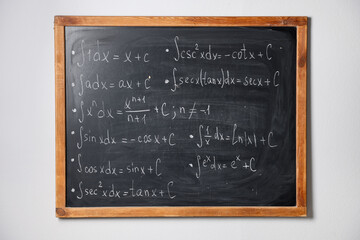 • ∫1dx = x + c
• ∫adx = ax + C
• ∫xⁿdx = xⁿ⁺¹/n+1 + C ; n ≠ -1
• ∫sinxdx = -cosx + C
• ∫cosxdx = sinx + C
• ∫sec²xdx = tanx + C
• ∫csc²xdx = -cotx + C
• ∫secx(tanx)dx = secx + C
• ∫1/x dx = ln|x| + C
• ∫eˣdx = eˣ + C